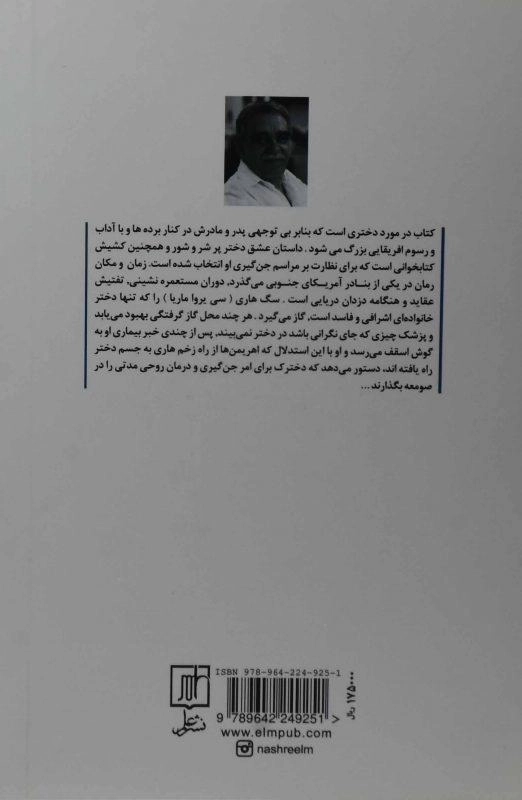 کتاب در مورد دختری است که بنابر بی توجهی پدر و مادرش در کنار برده ها و با آداب
و رسوم افریقایی بزرگ می شود . داستان عشق دختر پر شر و شور و همچنین کشیش
کتابخوانی است که برای نظارت بر مراسم جن‌گیری او انتخاب شده است. زمان و مکان
رمان در یکی از بنادر آمریکای جنوبی می‌گذرد, دوران مستعمره نشینی, تفتیش
عقاید و هنگامه دزدان دریایی است . سگ هاری ( سی یروا ماریا ) را که تنها دختر
خانواده‌ای اشرافی و فاسد است, گاز می‌گیرد . هر چند محل گاز گرفتگی بهبود می‌یابد
و پزشک چیزی که جای نگرانی باشد در دختر نمی‌بیند, پس از چندی خبر بیماری او به
گوش اسقف می‌رسد و او با این استدلال که اهریمن‌ها از راه زخم هاری به جسم دختر
راه یافته اند, دستور می‌دهد که دخترک برای امر جن‌گیری و درمان روحی مدتی را در
صومعه بگذارند ...
ISBN 978-964-224-925-1
9 789642 249251 >
۱۷۵۰۰۰ ریال
نشر علم
www.elmpub.com
nashreelm